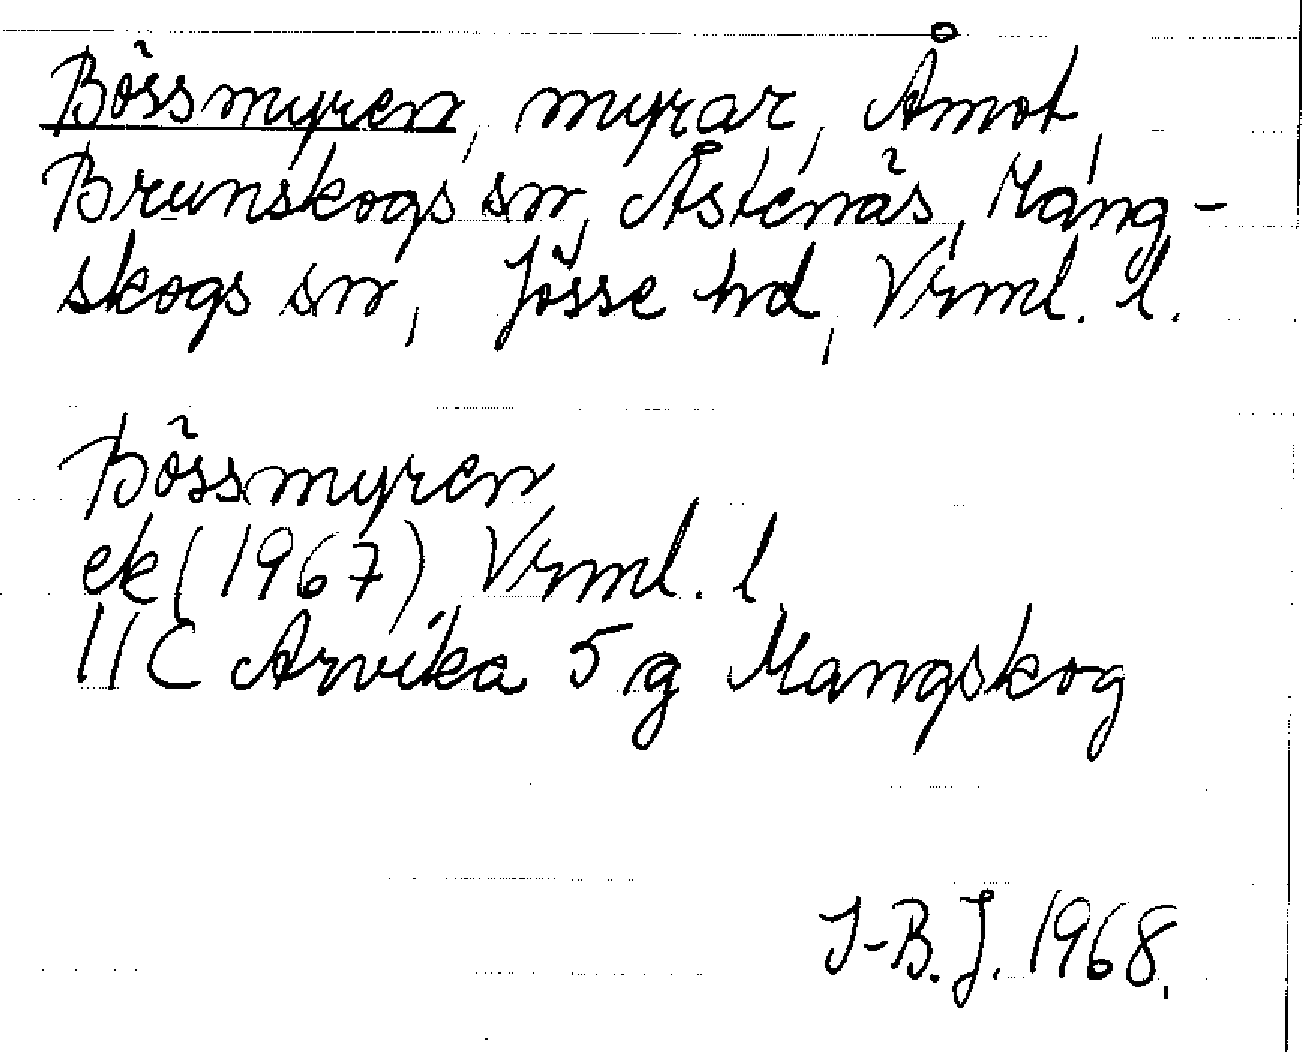 Bössmyren, myrar, Åmot,
Brunskogs sn, Åstenäs, Mang-
skogs sn, Jösse hd, Vrml. l.
Bössmyren
ek (1967) Vrml. l
11C Arvika 5 g Mangskog
I-B. J. 1968.